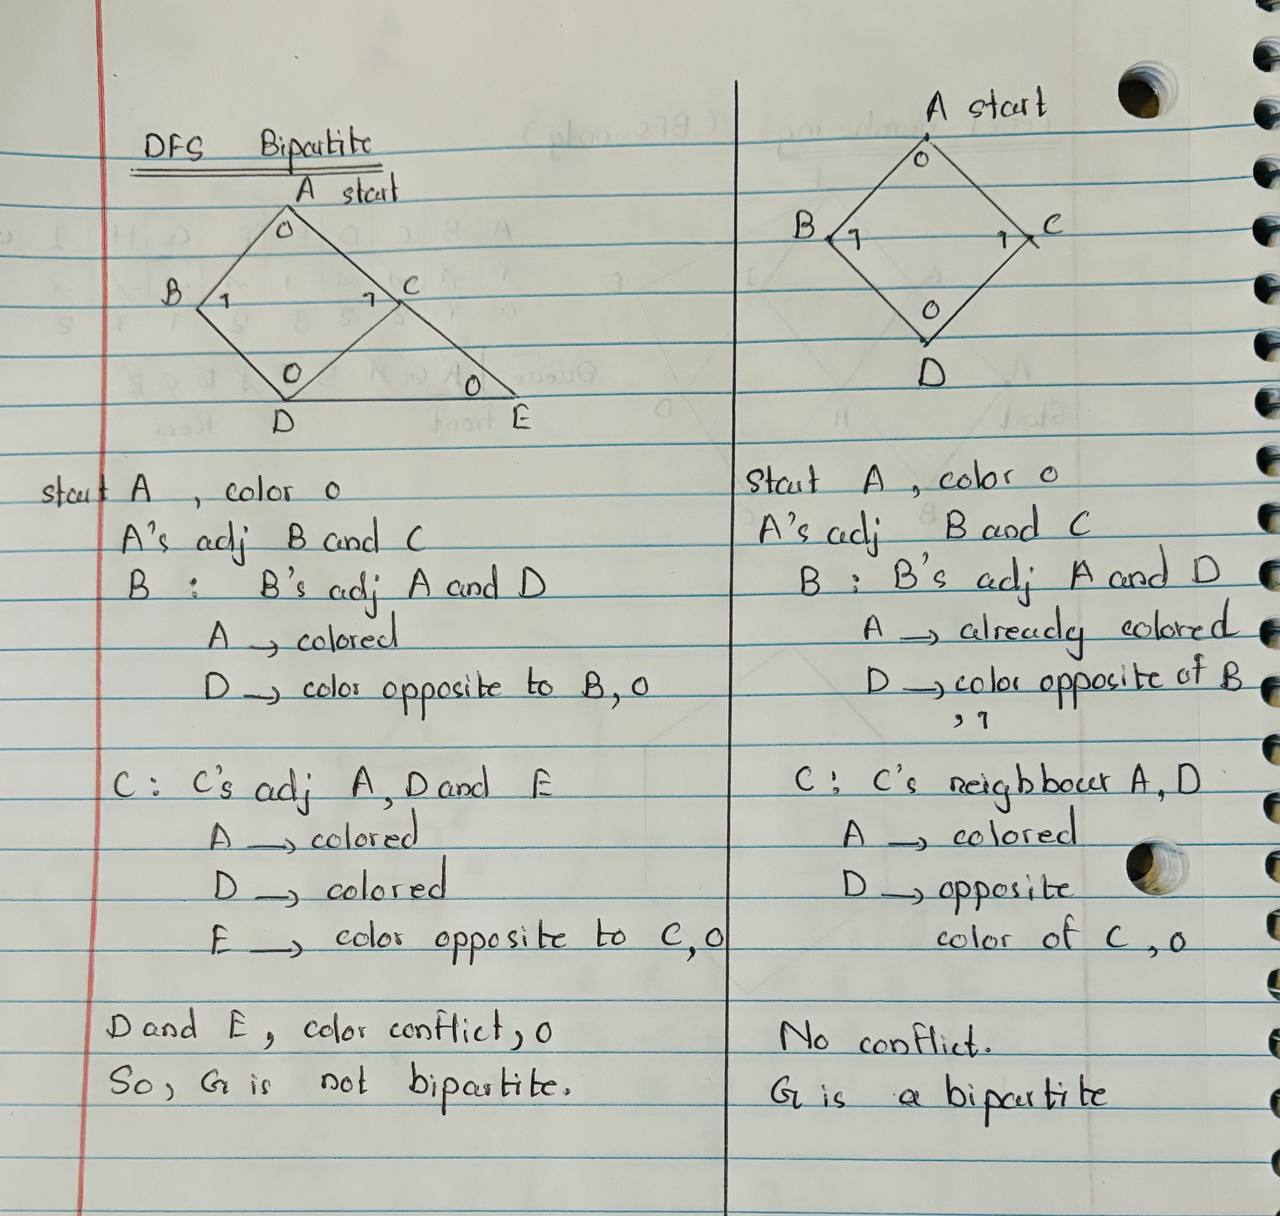 DFS Bipartite
A start
0
B 1 1 C
0 0
D E
start A , color 0
A's adj B and C
B : B's adj A and D
A → colored
D → color opposite to B, 0
C : C's adj A, D and E
A → colored
D → colored
E → color opposite to C, 0
D and E, color conflict, 0
So, G is not bipartite.
A start
0
B 1 1 C
0
D
Start A , color 0
A's adj B and C
B : B's adj A and D
A → already colored
D → color opposite of B
, 1
C : C's neighbour A, D
A → colored
D → opposite
color of C , 0
No conflict.
G is a bipartite